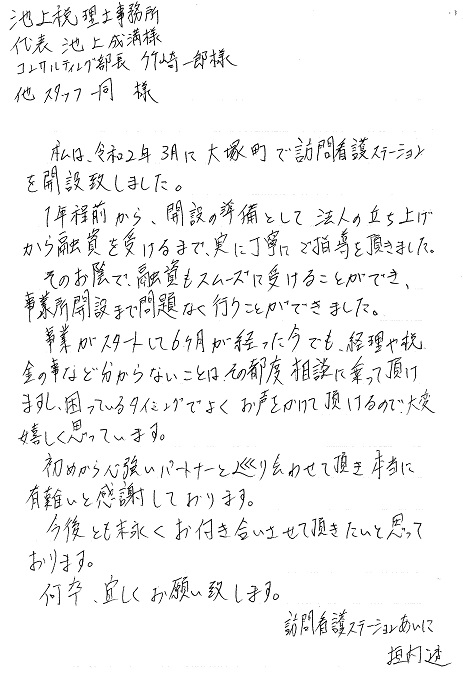 池上税理士事務所
代表 池上成満様
コンサルティング部長 竹崎一郎様
他 スタッフ一同 様
私は、令和2年3月に大塚町で訪問看護ステーション
を開設致しました。
1年程前から、開設の準備として法人の立ち上げ
から融資を受けるまで、実に丁寧にご指導を頂きました。
そのお陰で、融資もスムーズに受けることができ、
事業所開設まで問題なく行うことができました。
事業がスタートして6ヶ月が経った今でも、経理や税
金の事など分からないことはその都度相談に乗って頂け
ますし、困っているタイミングでよくお声をかけて頂けるので大変
嬉しく思っています。
初めから心強いパートナーと巡り会わせて頂き本当に
有難いと感謝しております。
今後とも末永くお付き合いさせて頂きたいと思って
おります。
何卒、宜しくお願い致します。
訪問看護ステーションあいに
垣内